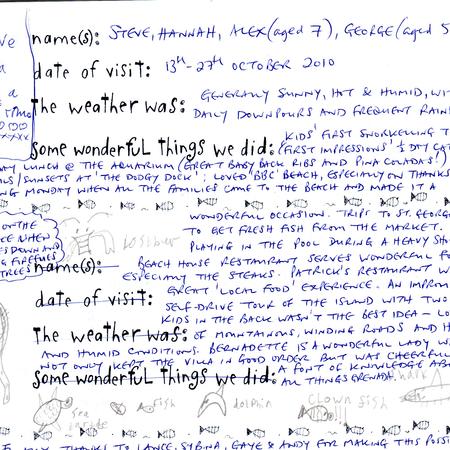 name(s): STEVE, HANNAH, ALEX (aged 7), GEORGE (aged 5
date of visit: 13th - 27th OCTOBER 2010
The weather was: GENERALLY SUNNY, HOT & HUMID, WI
DAILY DOWNPOURS AND FREQUENT RAIN
some wonderful things we did: KIDS' FIRST SNORKELLING T
('FIRST IMPRESSIONS' ½ DAY CA
AY LUNCH @ THE AQUARIUM (GREAT BABY BACK RIBS AND PINA COLADAS!)
LS/SUNSETS AT 'THE DODGY DOCK'; LOVED 'BBC' BEACH, ESPECIALLY ON THANKS
NG MONDAY WHEN ALL THE FAMILIES CAME TO THE BEACH AND MADE IT A
WONDERFUL OCCASION. TRIPS TO ST. GEORGE
TO GET FRESH FISH FROM THE MARKET.
PLAYING IN THE POOL DURING A HEAVY SHO
ON THE
CE WHEN
ES DOWN AND
FIREFLIES
TREES
lobster
name(s): BEACH HOUSE RESTAURANT SERVES WONDERFUL FO
ESPECIALLY THE STEAKS. PATRICK'S RESTAURANT W
GREAT 'LOCAL FOOD' EXPERIENCE. AN IMPROM
date of visit: SELF-DRIVE TOUR OF THE ISLAND WITH TWO
KIDS IN THE BACK WASN'T THE BEST IDEA - LO
The weather was: OF MOUNTAINOUS, WINDING ROADS AND H
AND HUMID CONDITIONS. BERNADETTE IS A WONDERFUL LADY W
NOT ONLY KEPT THE VILLA IN GOOD ORDER BUT WAS CHEERFUL
some wonderful things we did: A FONT OF KNOWLEDGE AB
ALL THINGS GRENADA.
sea
fish
dolphin
clown fish
THANKS TO LANCE, SYBINA, GAYE & ANDY FOR MAKING THIS POSSI